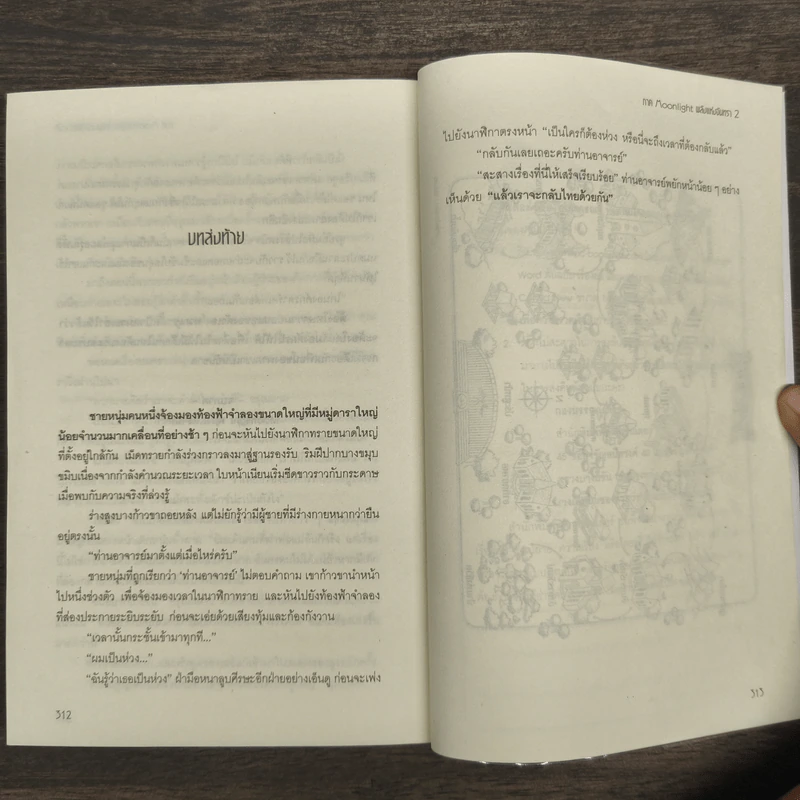 บทส่งท้าย
ชายหนุ่มคนหนึ่งจ้องมองท้องฟ้าจำลองขนาดใหญ่ที่มีหมู่ดาราใหญ่
น้อยจำนวนมากเคลื่อนที่อย่างช้า ๆ ก่อนจะหันไปยังนาฬิกาทรายขนาดใหญ่
ที่ตั้งอยู่ใกล้กัน เม็ดทรายกำลังร่วงกราวลงมาสู่ฐานรองรับ ริมฝีปากบางขมุบ
ขมิบเนื่องจากกำลังคำนวณระยะเวลา ใบหน้าเนียนเริ่มซีดขาวราวกับกระดาษ
เมื่อพบกับความจริงที่ล่วงรู้
ร่างสูงบางก้าวขาถอยหลัง แต่ไม่ยักรู้ว่ามีผู้ชายที่มีร่างกายหนากว่ายืน
อยู่ตรงนั้น
“ท่านอาจารย์มาตั้งแต่เมื่อไหร่ครับ”
ชายหนุ่มที่ถูกเรียกว่า ‘ท่านอาจารย์’ ไม่ตอบคำถาม เขาก้าวขานำหน้า
ไปหนึ่งช่วงตัว เพื่อจ้องมองเวลาในนาฬิกาทราย และหันไปยังท้องฟ้าจำลอง
ที่ส่องประกายระยิบระยับ ก่อนจะเอ่ยด้วยเสียงทุ้มและก้องกังวาน
“เวลานั้นกระชั้นเข้ามาทุกที...”
“ผมเป็นห่วง...”
“ฉันรู้ว่าเธอเป็นห่วง” ฝ่ามือหนาลูบศีรษะอีกฝ่ายอย่างเอ็นดู ก่อนจะเพ่ง
312
ภาค Moonlight 2
ไปยังนาฬิกาตรงหน้า “เป็นใครก็ต้องห่วง หรือนี่จะถึงเวลาที่ต้องกลับแล้ว”
“กลับกันเลยเถอะครับท่านอาจารย์”
“สะสางเรื่องที่นี่ให้เสร็จเรียบร้อย” ท่านอาจารย์พยักหน้าน้อย ๆ อย่าง
เห็นด้วย “แล้วเราจะกลับไทยด้วยกัน”
313